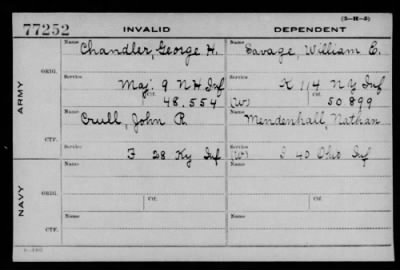 (3-H-3)
77252 INVALID DEPENDENT
Name Chandler, George H. Name Savage, William E.
ORIG. Service Maj. 9 N H Inf Service K 114 N Y Inf
Ctf. 48.554 (W) Ctf. 50.899
ARMY
Name Crull, John R. Name Mendenhall, Nathan
CTF. Service F 28 Ky Inf Service (W) I 40 Ohio Inf
Name Name
ORIG. Service Service
Ctf. Ctf.
NAVY
Name Name
CTF. Service Service